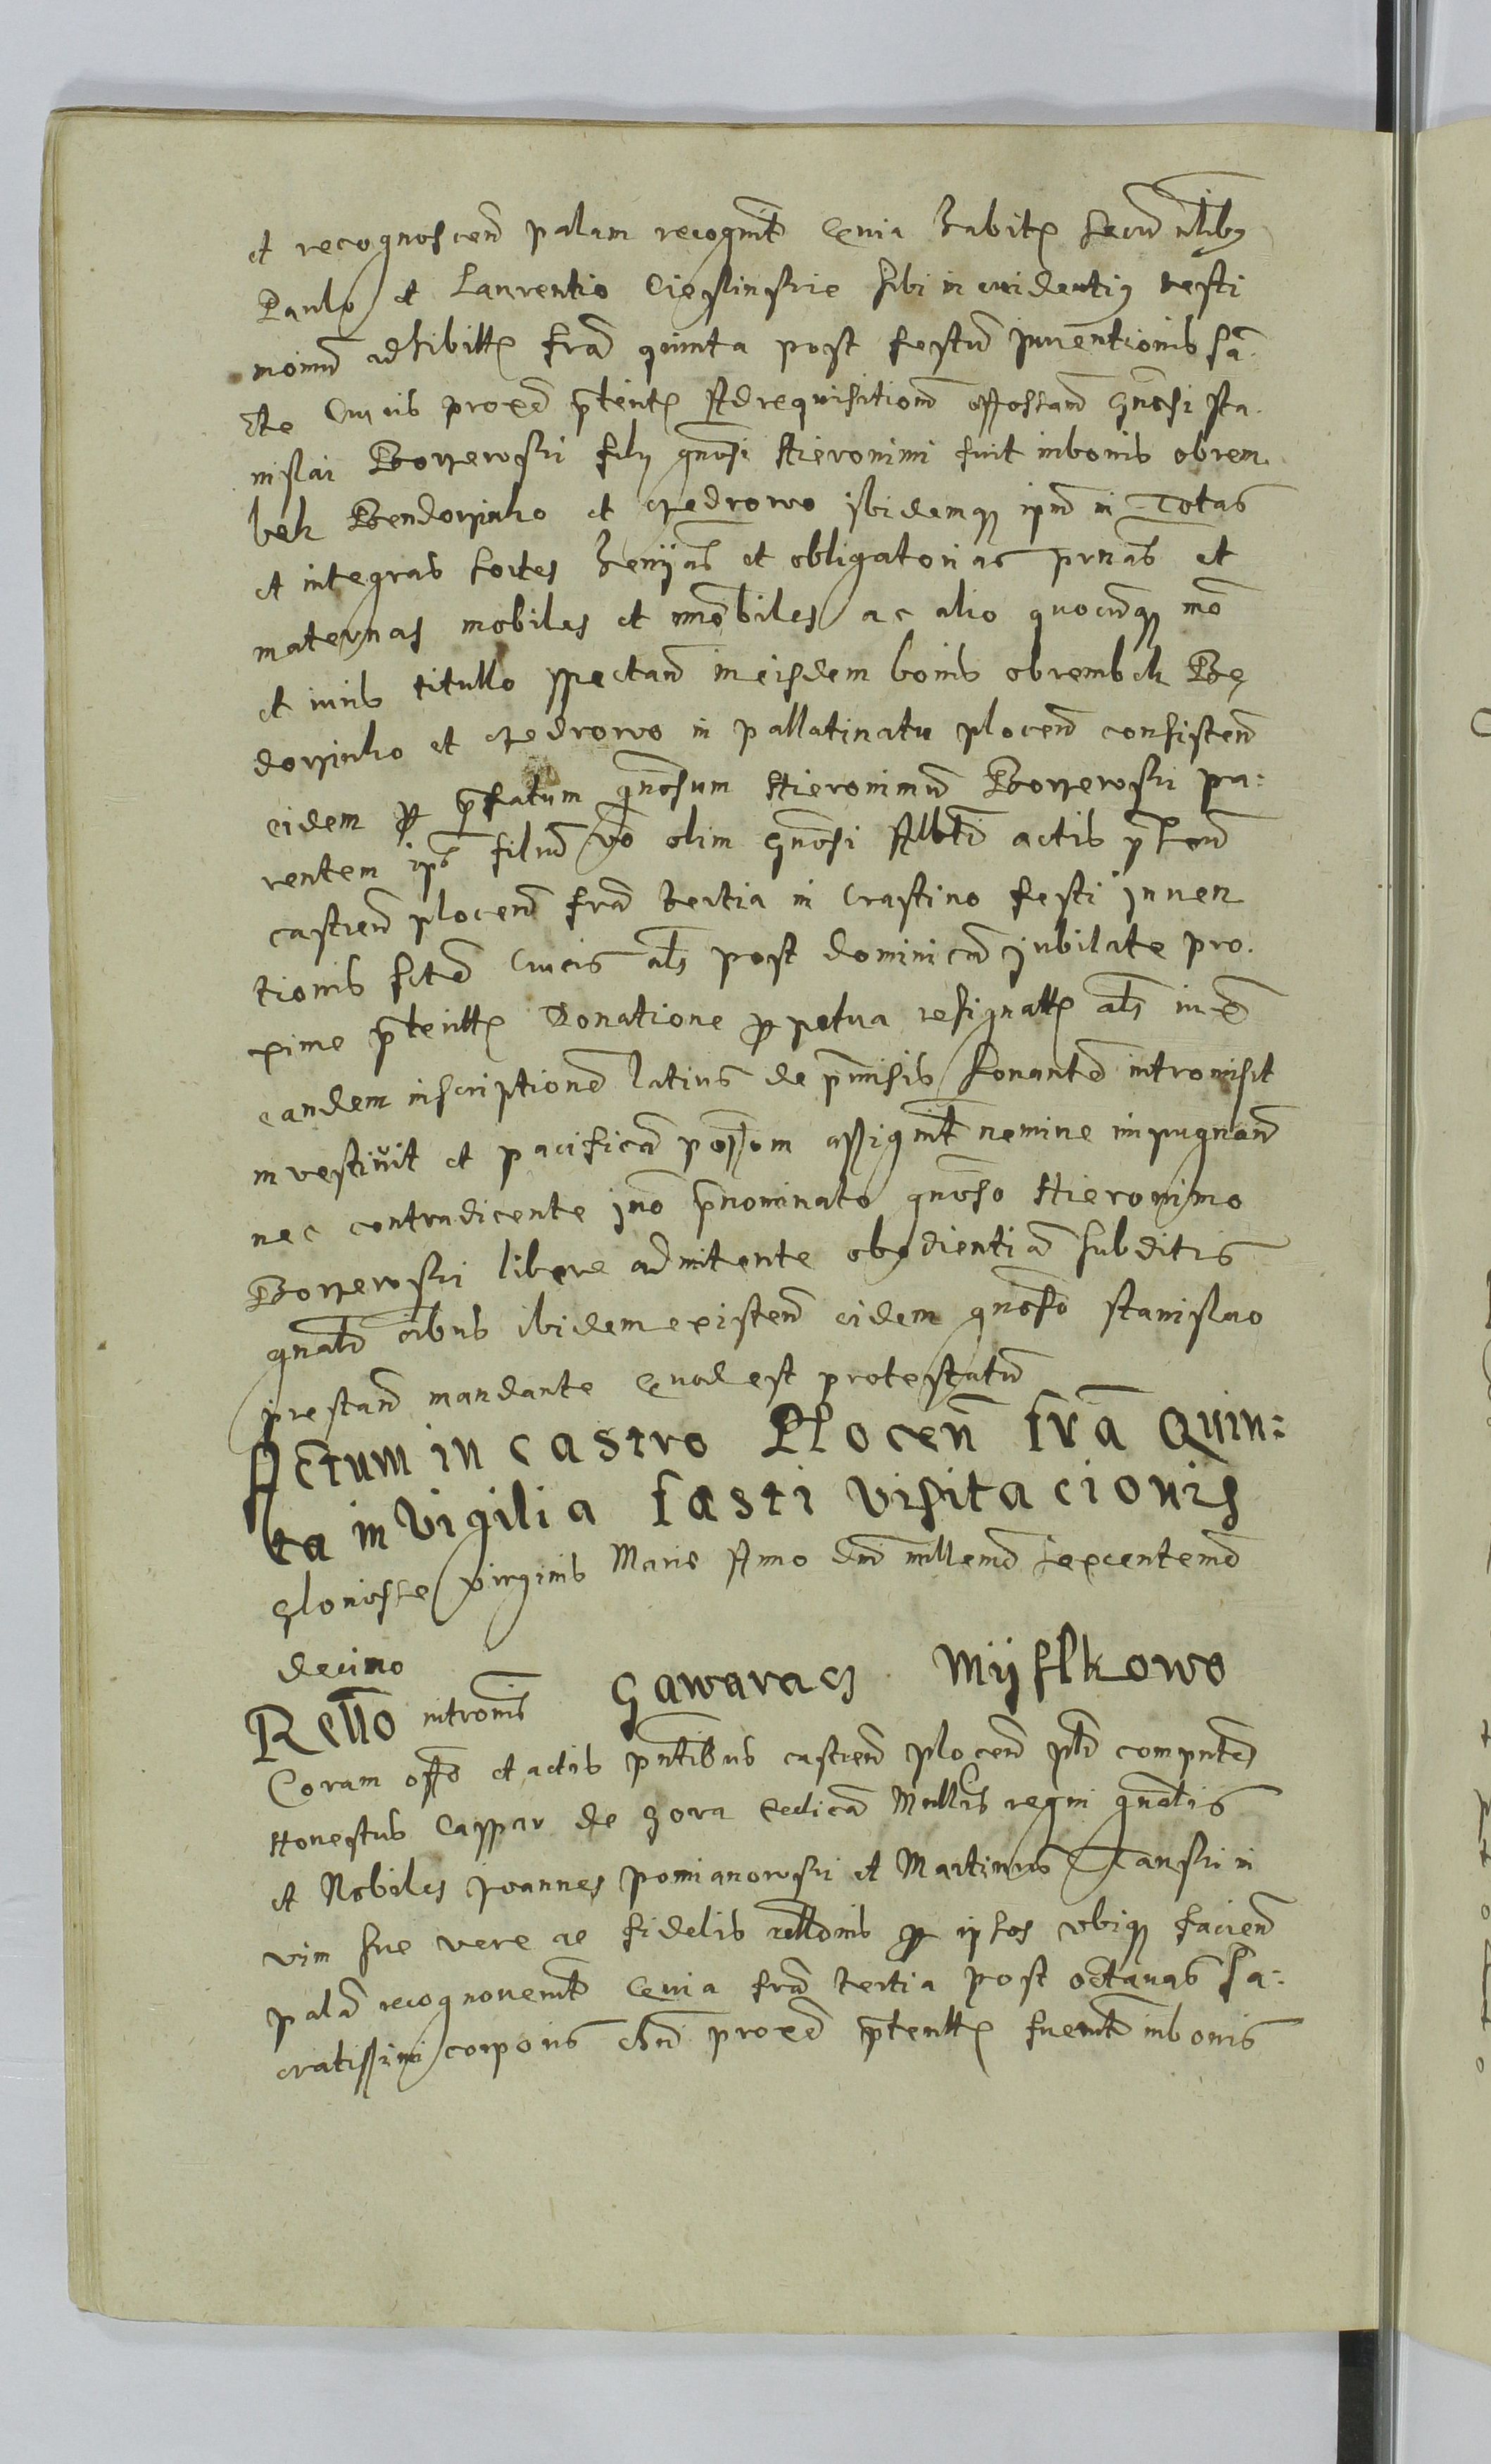 et recognoscen palam recognit Quia habitis secum nlibus
Paulo et Laurentio Cieslinskie sibi in evidentius testi
monium adhibitis fria quinta post festum Inventionis san
cte Crucis proxe pterit Ad requisitionem offosam gnosi Sta
nislai Borzewski filii gnosi Hieronimi fuit in bonis obrem
bek Bendorzinko et Cedrowo ibidemq ipm in Totas
et integras sortes hereditas et obligatorias prnas et
maternas mobiles et immobiles ac alio quocunq mo
et iuris titullo spectan in eisdem bonis obrembek Be
dorzinko et Cedrowo in pallatinatu plocen consisten
eidem per prefatum gnosum Hieronimum Borzewski pa:
rentem ips filium vo olim gnosi Alberti actis ptibus
castren plocen fria tertia in Crastino festi Inven
tionis scte Crucis als post dominicam Jubilate pro
xime pteritis Donatione perpetua resignatis als iuxta
eandem inscriptionem latius de premissis sonantem intromisit
investivit et pacificam possom assignit nemine impugnan
nec contradicente imo prenominato gnoso Hieronimo
Borzewski libere admitente obedientia subditis
gnalr oibus ibidem existen eidem gnoso Stanislao
prestan mandante Quod est protestatum
Actum in castro Plocen fria Quin:
ta in Vigilia festi Visitacionis
gloriosse virginis Marie Anno dni millemo sexcentemo
decimo
Rello intromis Gawarzecz Myslkowo
Coram offo et actis pntibus castren plocen pls compntes
Honestus Caspar de Gora Cedica Mllris regni gnalis
et Nobiles Joannes pomianowski et Martinus Tanski in
vim sue vere ac fidelis rellonis per ipsos ubiq facien
palam recognoverunt Quia fria tertia post octavas sa:
cratissimi corporis chri proxe pteritis fuerunt in bonis